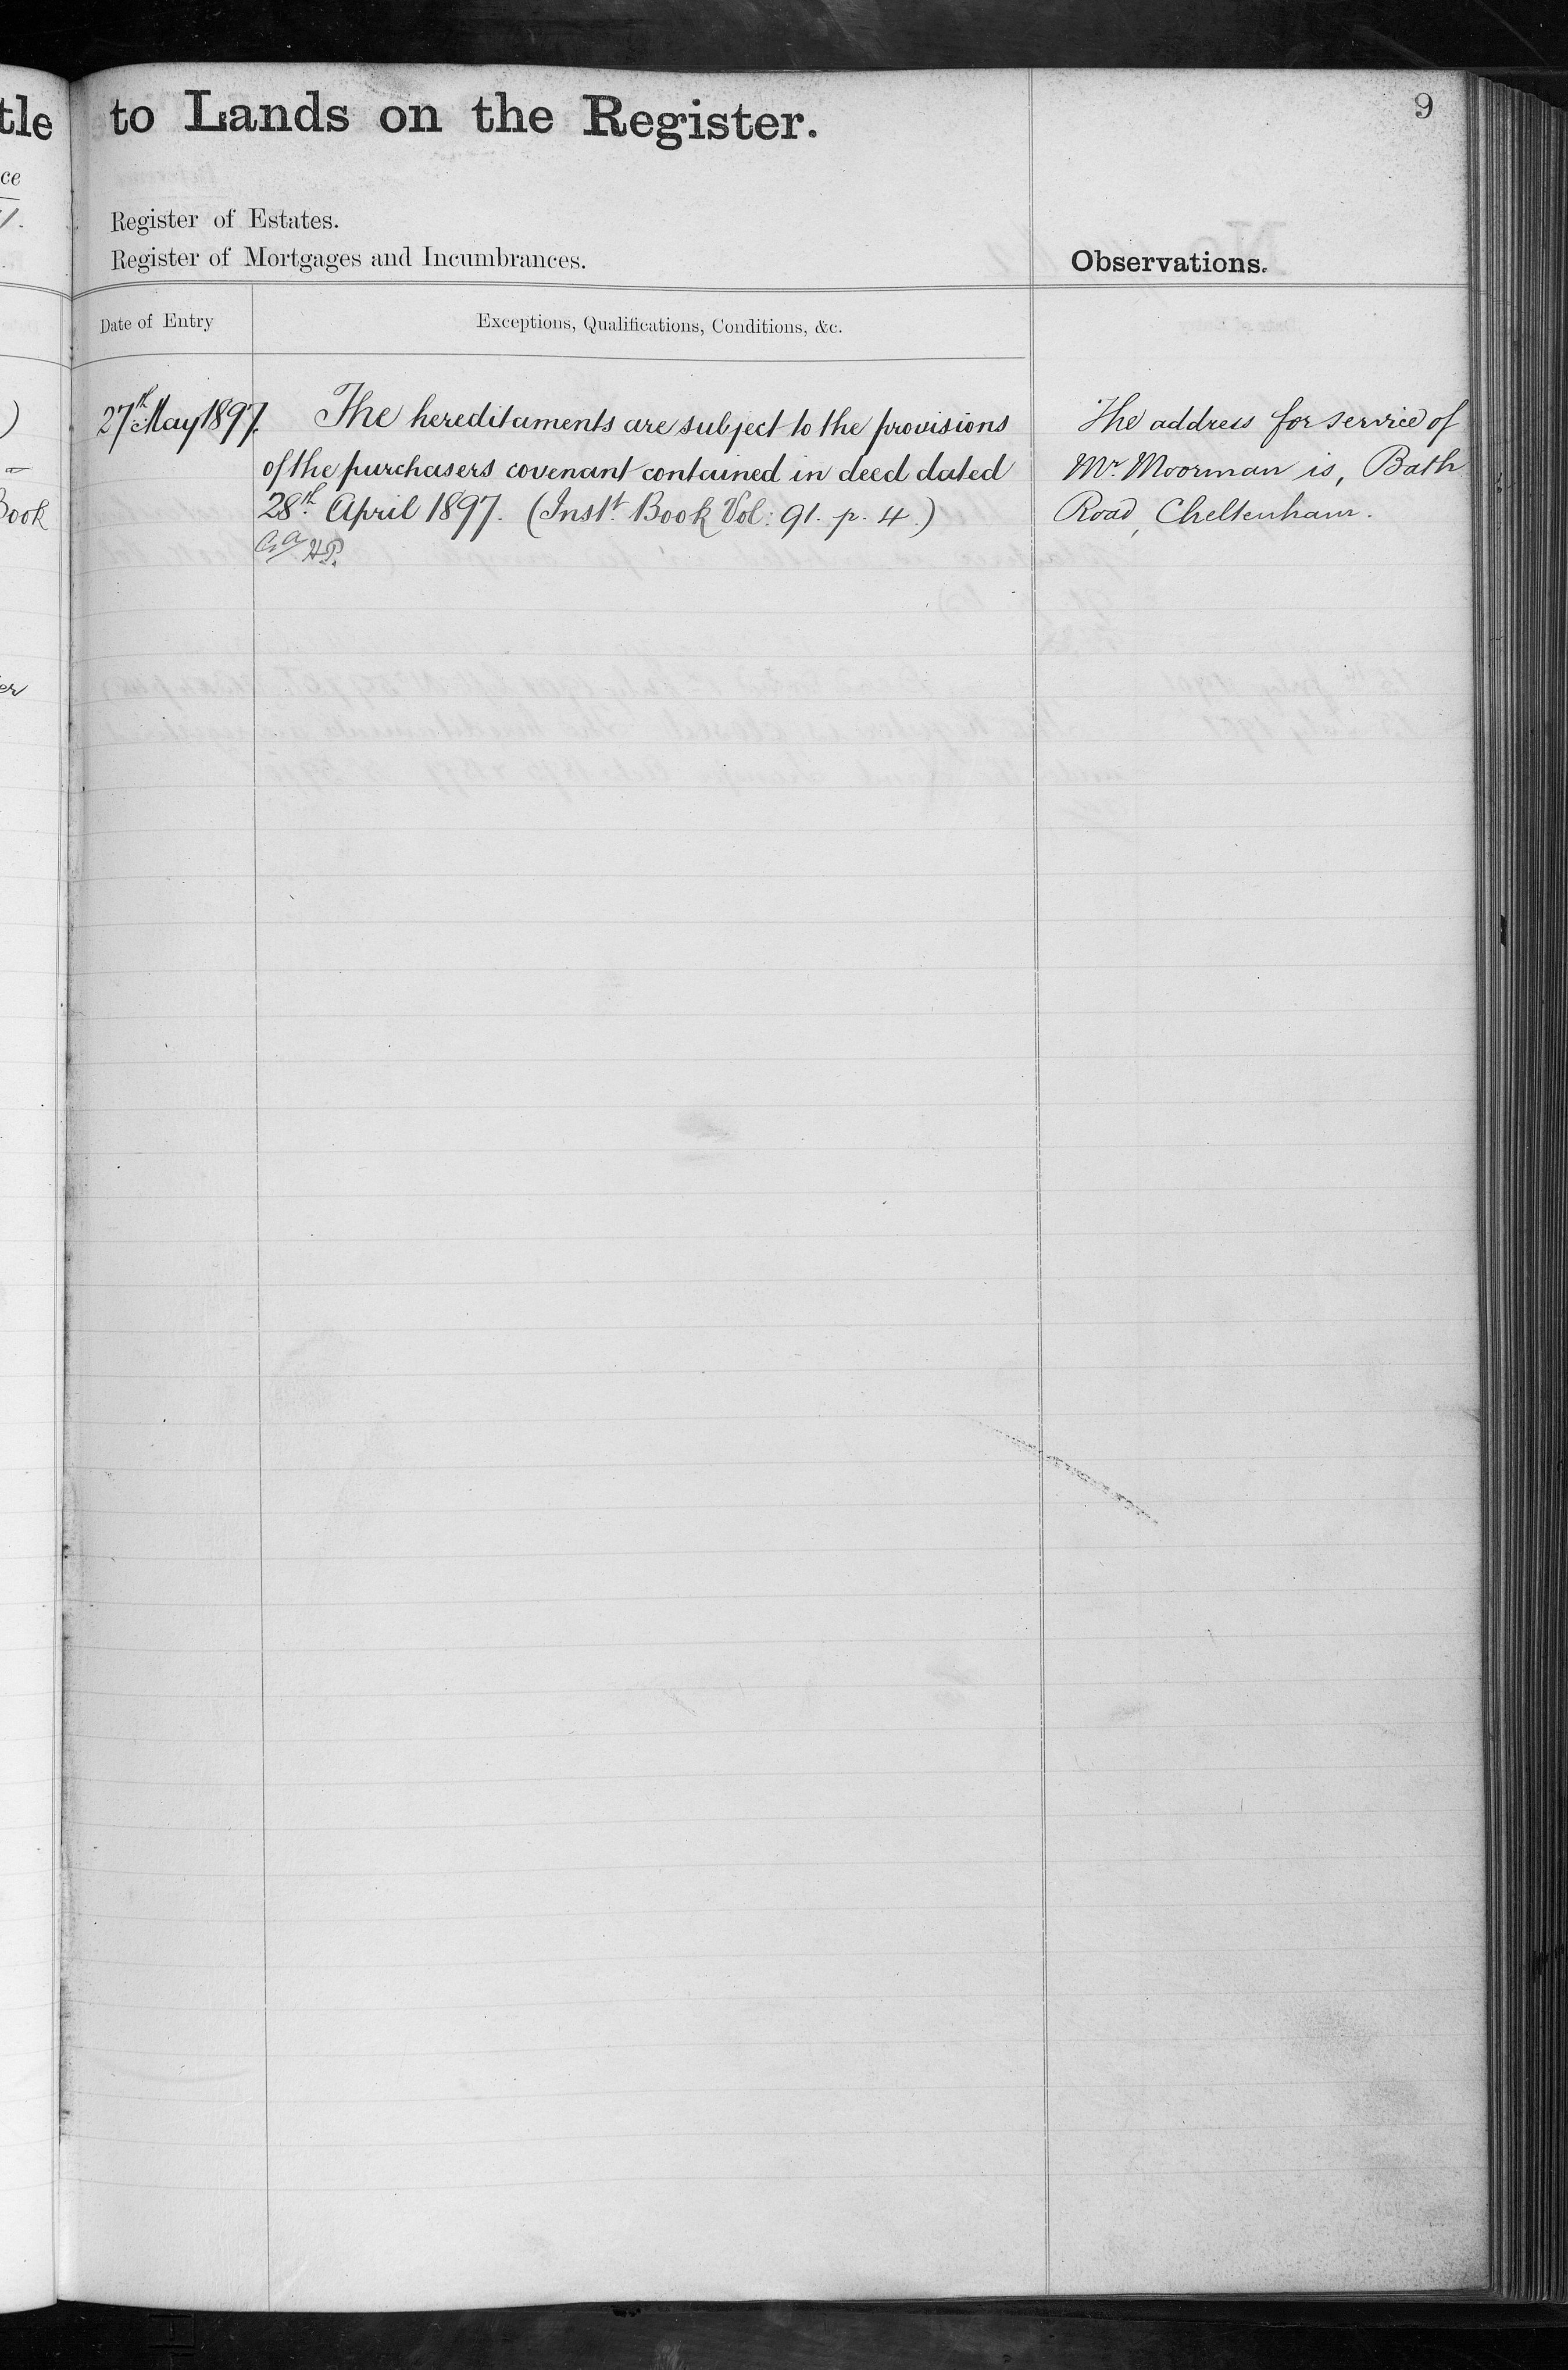 tle to Lands on the Register.
9
ce
Register of Estates.
Register of Mortgages and Incumbrances.
Observations.
Date of Entry
Exceptions, Qualifications, Conditions, &c.
27th May 1897.
The hereditaments are subject to the provisions
of the purchasers covenant contained in deed dated
28th April 1897. (Inst. Book Vol: 91. p. 4.)
H.P.
The address for service of
Mr. Moorman is, Bath
Road, Cheltenham.
)
Book
er